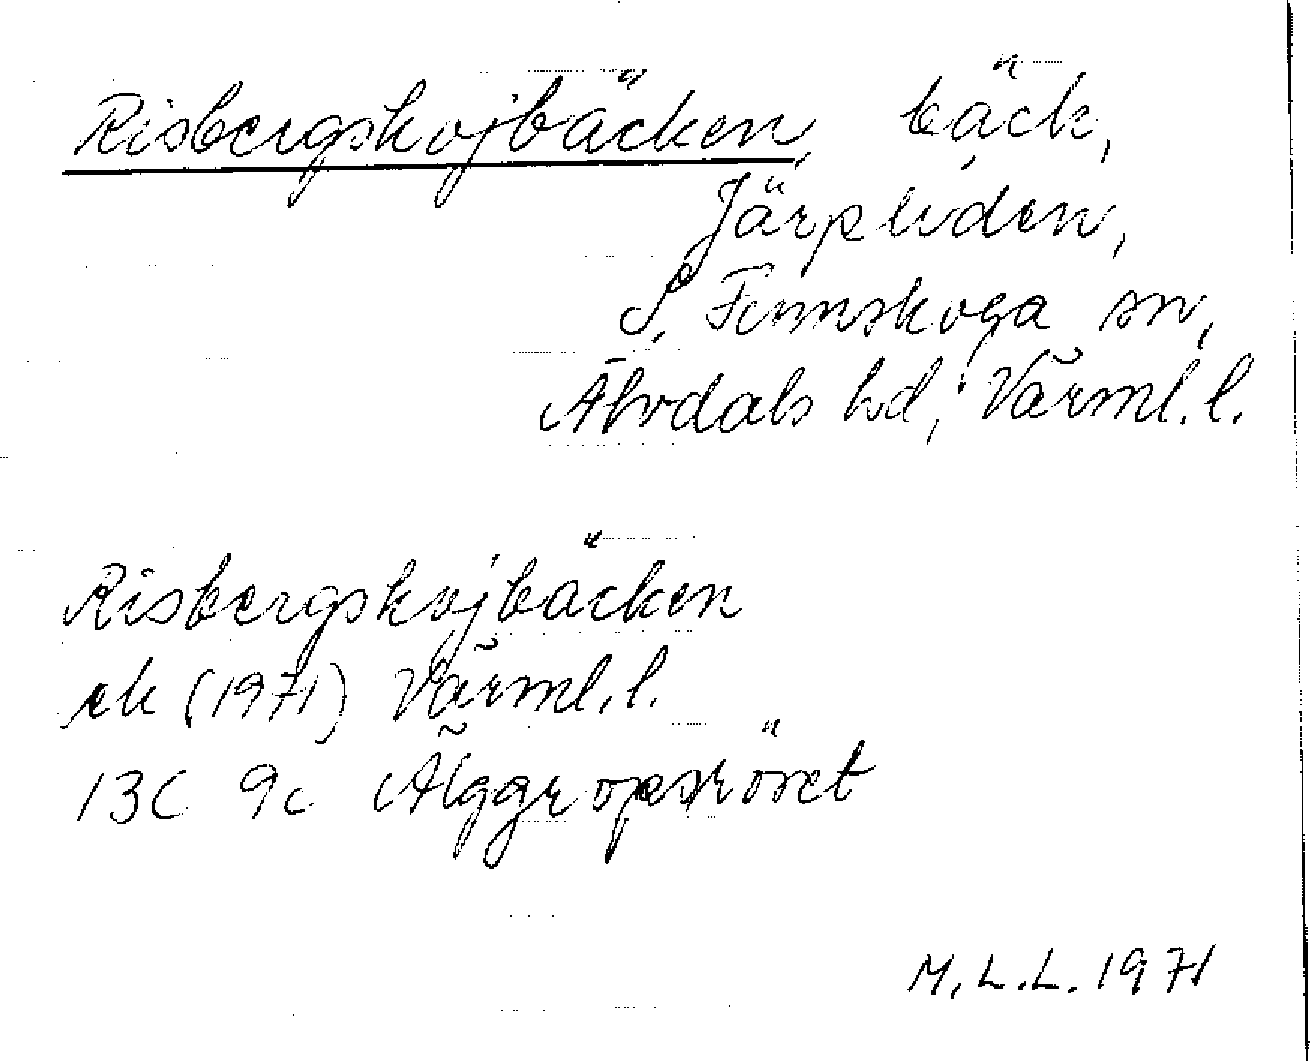 Risbergskojbäcken, bäck,
Järpliden,
S. Finnskoga sn,
Älvdals hd, Värml. l.
Risbergskojbäcken
ek (1971) Värml. l.
13C 9c Älggropsröset
M. L. L. 1971